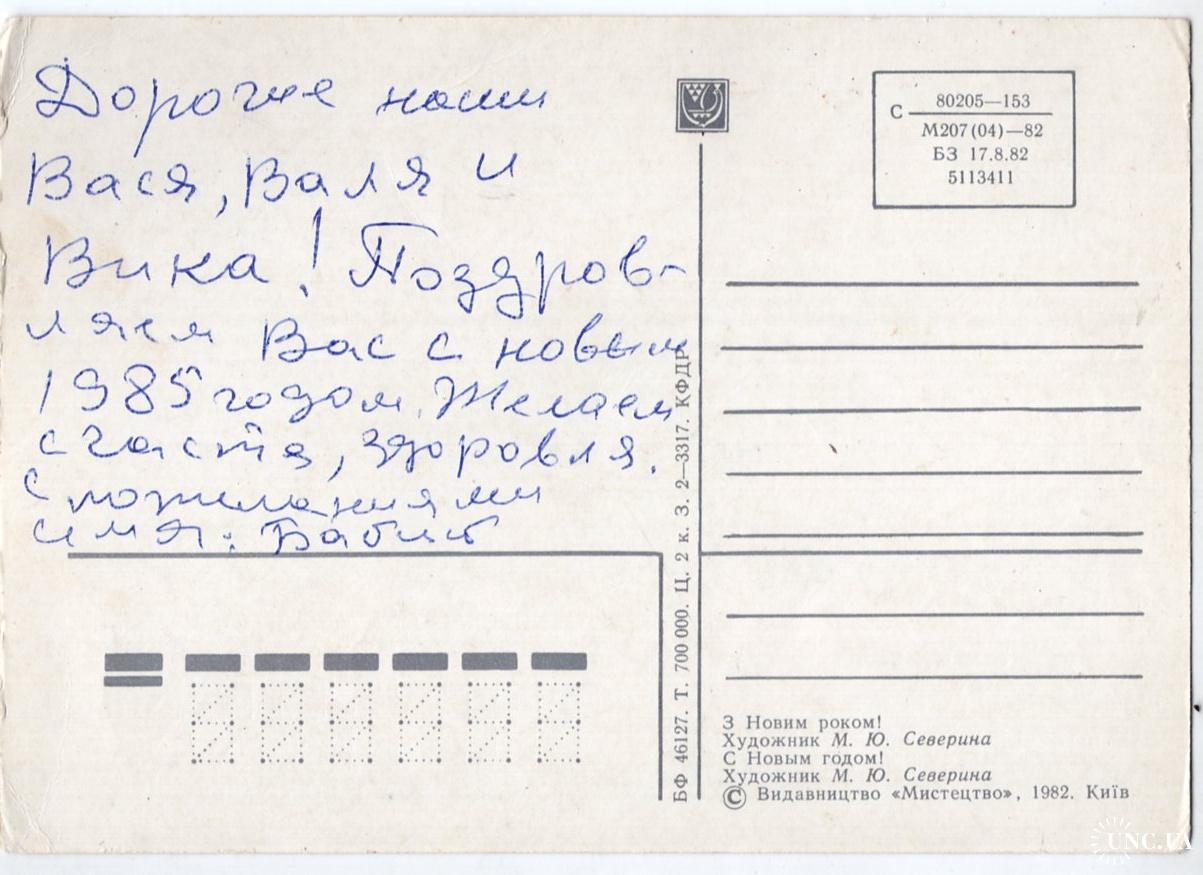 Дорогие наши
Вася, Валя и
Вика! Поздров-
ляем Вас с новым
1985 годом. Желаем
счастя, здоровля.
С пожеланиями
С
80205—153
М207(04)—82
БЗ 17.8.82
5113411
БФ 46127. Т. 700 000. Ц. 2 к. З. 2—3317. КФДР
З Новим роком!
Художник М. Ю. Северина
С Новым годом!
Художник М. Ю. Северина
© Видавництво «Мистецтво», 1982. Київ
UNC.UA